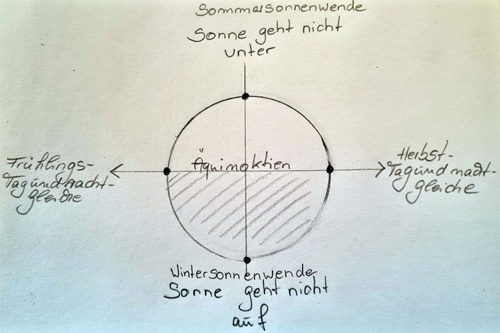 Sommersonnenwende
Sonne geht nicht
unter
Frühlings-
Tagundnacht-
gleiche
Äquinoktien
Herbst-
Tagundnacht-
gleiche
Wintersonnenwende
Sonne geht nicht
auf